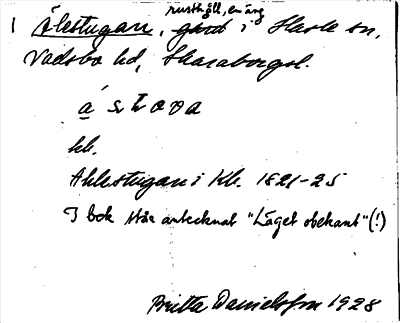 rusthåll, en äng
1 Ålestugan, gård i Hasle sn,
Vadsbo hd, Skaraborgsl.
å s t ọ v a
kb.
Ahlestugan i Kb. 1821-25
I bok står antecknat "Läget obekant" (!)
Britta Danielsson 1928